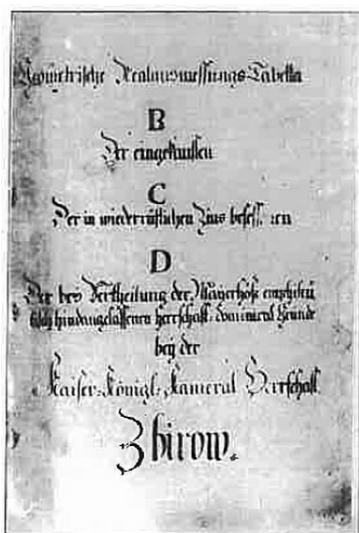 Geometrische Realausmessungs-Tabella
B
Der eingekauften
C
Der in wiederruflichen Zins besess. nen
D
Der bey Vertheilung der Mayerhöfe emphiteu
tisch hindangelassenen Herrschaft: Dominical Gründe
bey der
Kaiser: Königl: Kameral Herrschaft
Zbirow.